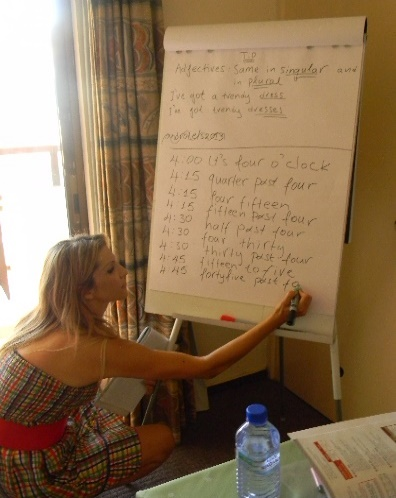 TOP
Adjectives: Same in singular and
in plural
I've got a trendy dress
I'm got trendy dresses
4:00 It's four o'clock
4:15 quarter past four
4:15 four fifteen
4:15 fifteen past four
4:30 half past four
4:30 four thirty
4:30 thirty past four
4:45 fifteen to five
4:45 fortyfive past fo